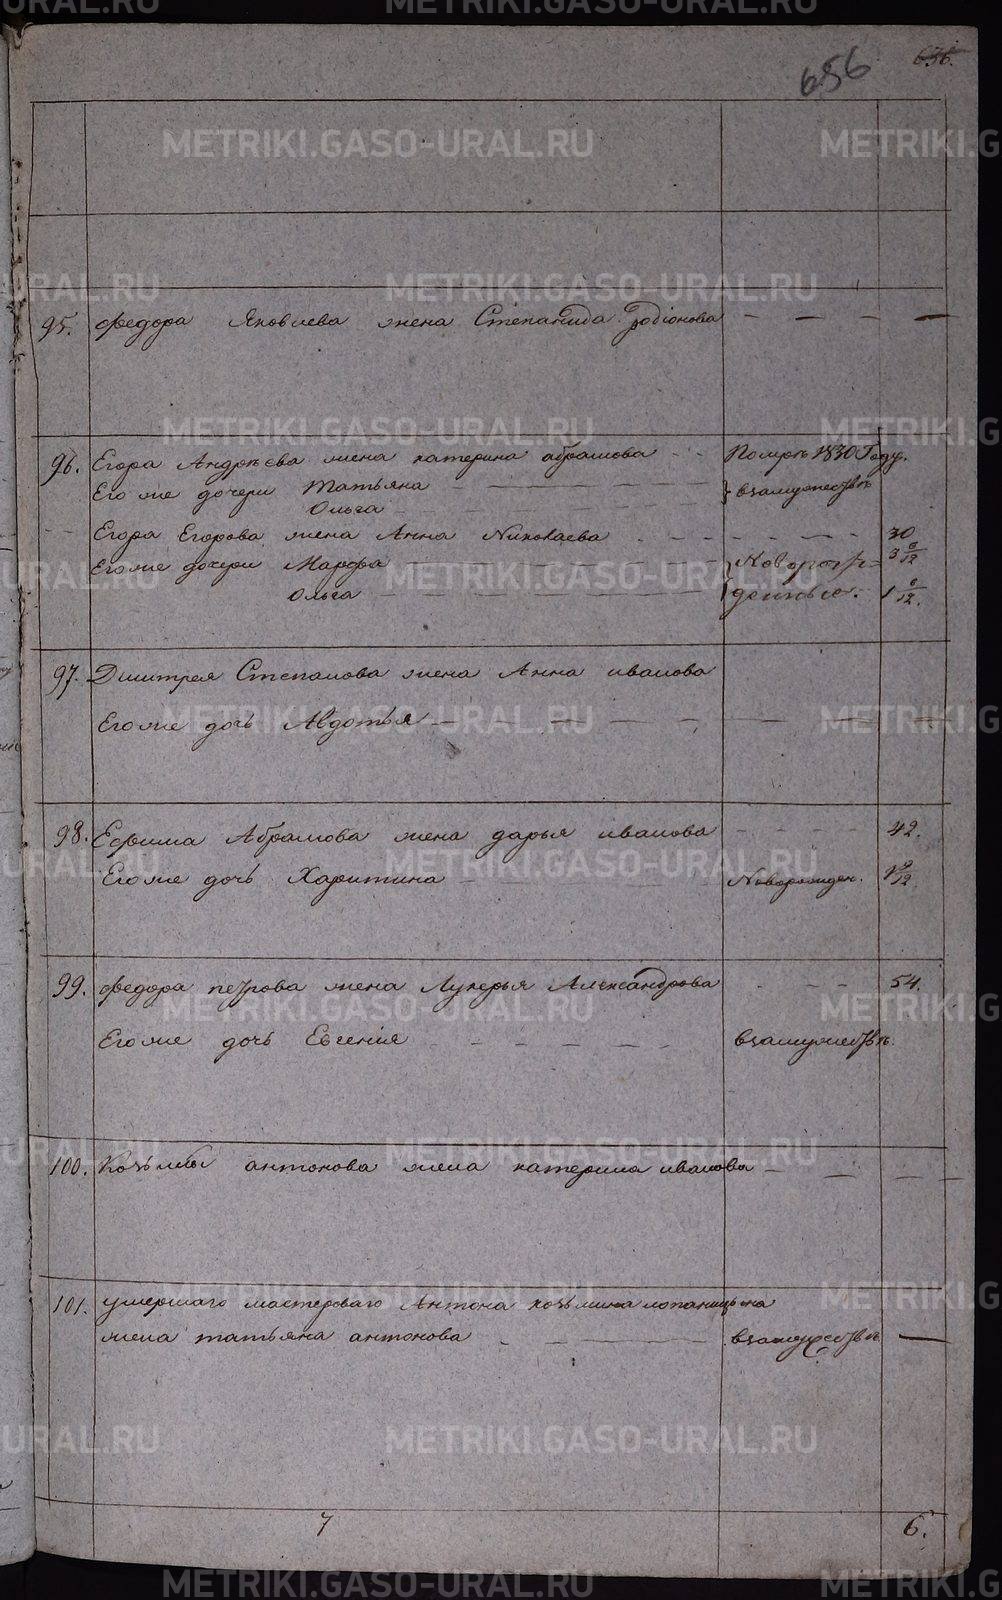 656
636.
95. Федора Яковлева жена Степанида Родіонова
96. Егора Андрѣева жена катерина абрамова Помрѣ 1830 Году.
Его же дочери Татьяна взамужествѣ
Ольга
Егора Егорова жена Анна Николаева 30
Егоже дочери Марфа Новорож= 3 6/12
Ольга денные. 1 6/12.
97. Дмитрея Степанова жена Анна иванова
Егоже дочь Авдотья
98. Ефима Абрамова жена дарья иванова 42.
Егоже дочь Харитина Новорожден. 9/12
99. Федора петрова жена Лукерья Александрова 54.
Егоже дочь Евгенія взамужествѣ.
100. Козьмы антонова жена катерина иванова
101. умершаго мастероваго Антона козьмина
жена татьяна антонова взамужествѣ
7 6.
METRIKI.GASO-URAL.RU